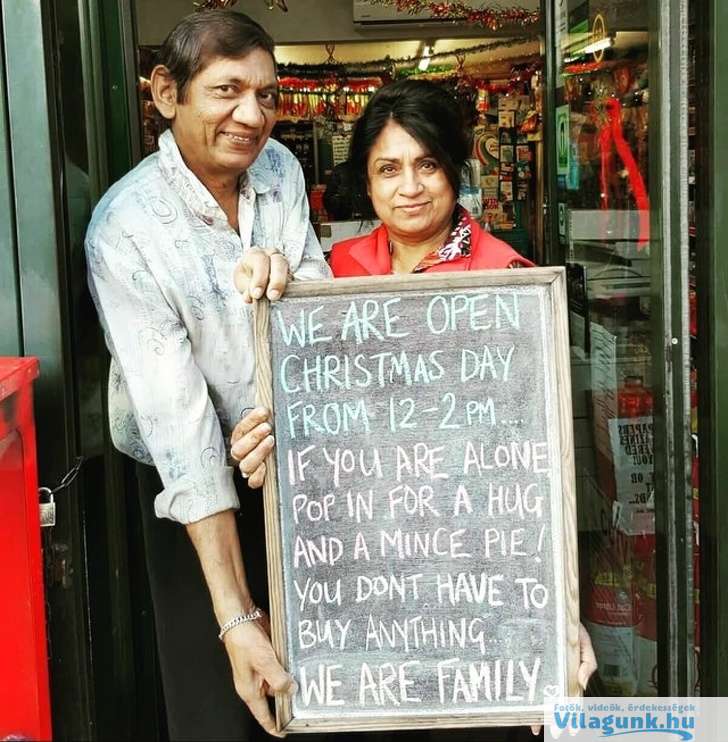 WE ARE OPEN
CHRISTMAS DAY
FROM 12-2PM....
IF YOU ARE ALONE
POP IN FOR A HUG
AND A MINCE PIE!
YOU DONT HAVE TO
BUY ANYTHING....
WE ARE FAMILY
Fotók, videók, érdekességek
Vilagunk.hu